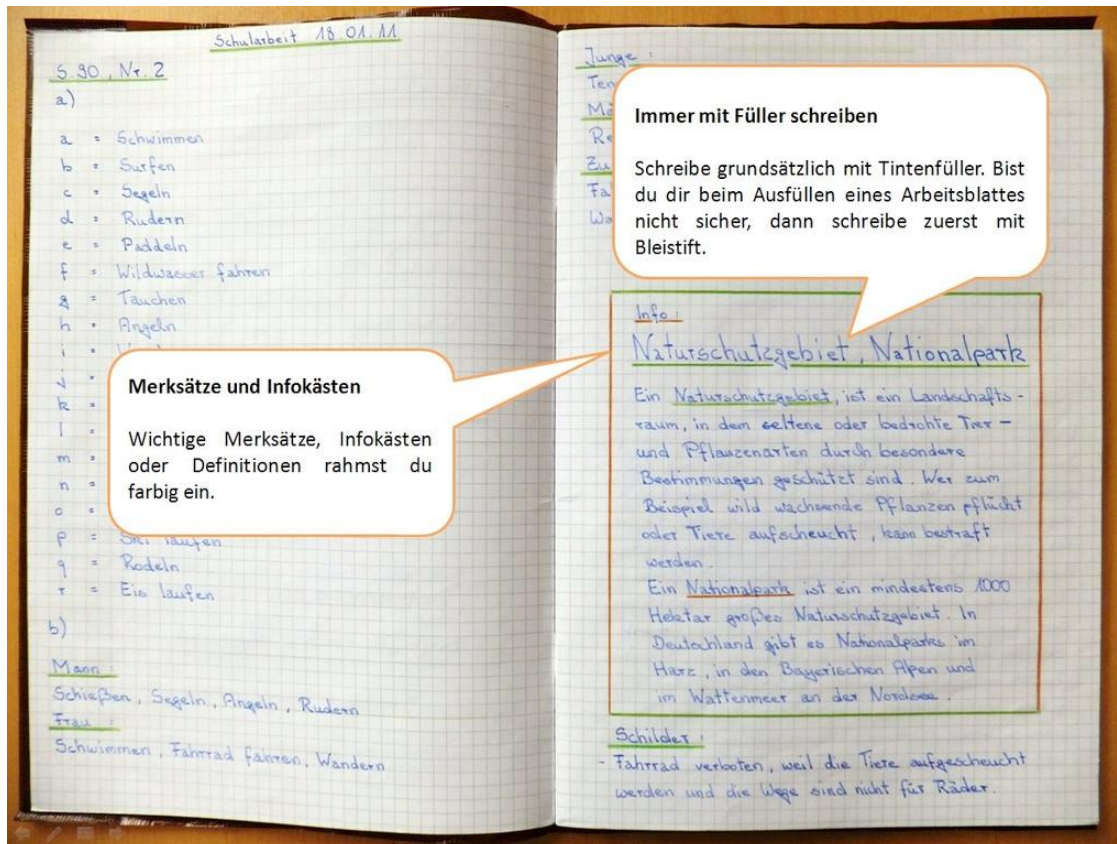 Schularbeit 18.01.11
S.90, Nr. 2
a)
a = Schwimmen
b = Surfen
c = Segeln
d = Rudern
e = Paddeln
f = Wildwasser fahren
g = Tauchen
h = Angeln
i =
j =
k =
l =
m =
n =
o =
p = Ski laufen
q = Rodeln
r = Eis laufen
b)
Mann :
Schießen, Segeln, Angeln, Rudern
Frau :
Schwimmen, Fahrrad fahren, Wandern
Merksätze und Infokästen
Wichtige Merksätze, Infokästen
oder Definitionen rahmst du
farbig ein.
Junge :
Immer mit Füller schreiben
Schreibe grundsätzlich mit Tintenfüller. Bist
du dir beim Ausfüllen eines Arbeitsblattes
nicht sicher, dann schreibe zuerst mit
Bleistift.
Info :
Naturschutzgebiet, Nationalpark
Ein Naturschutzgebiet, ist ein Landschafts-
raum, in dem seltene oder bedrohte Tier-
und Pflanzenarten durch besondere
Bestimmungen geschützt sind. Wer zum
Beispiel wild wachsende Pflanzen pflückt
oder Tiere aufscheucht, kann bestraft
werden.
Ein Nationalpark ist ein mindestens 1000
Hektar großes Naturschutzgebiet. In
Deutschland gibt es Nationalparks im
Harz, in den Bayerischen Alpen und
im Wattenmeer an der Nordsee.
Schilder :
- Fahrrad verboten, weil die Tiere aufgescheucht
werden und die Wege sind nicht für Räder.